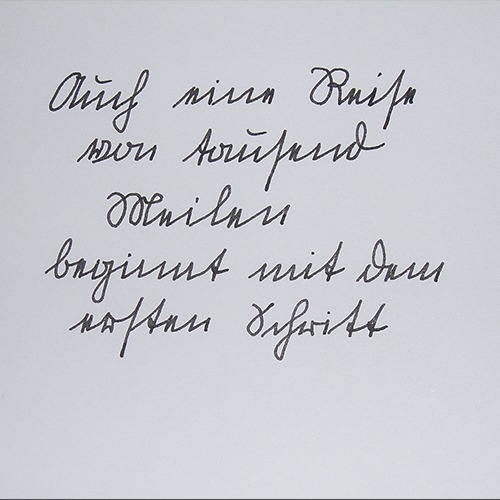 Auch eine Reise
von tausend
Meilen
beginnt mit dem
ersten Schritt